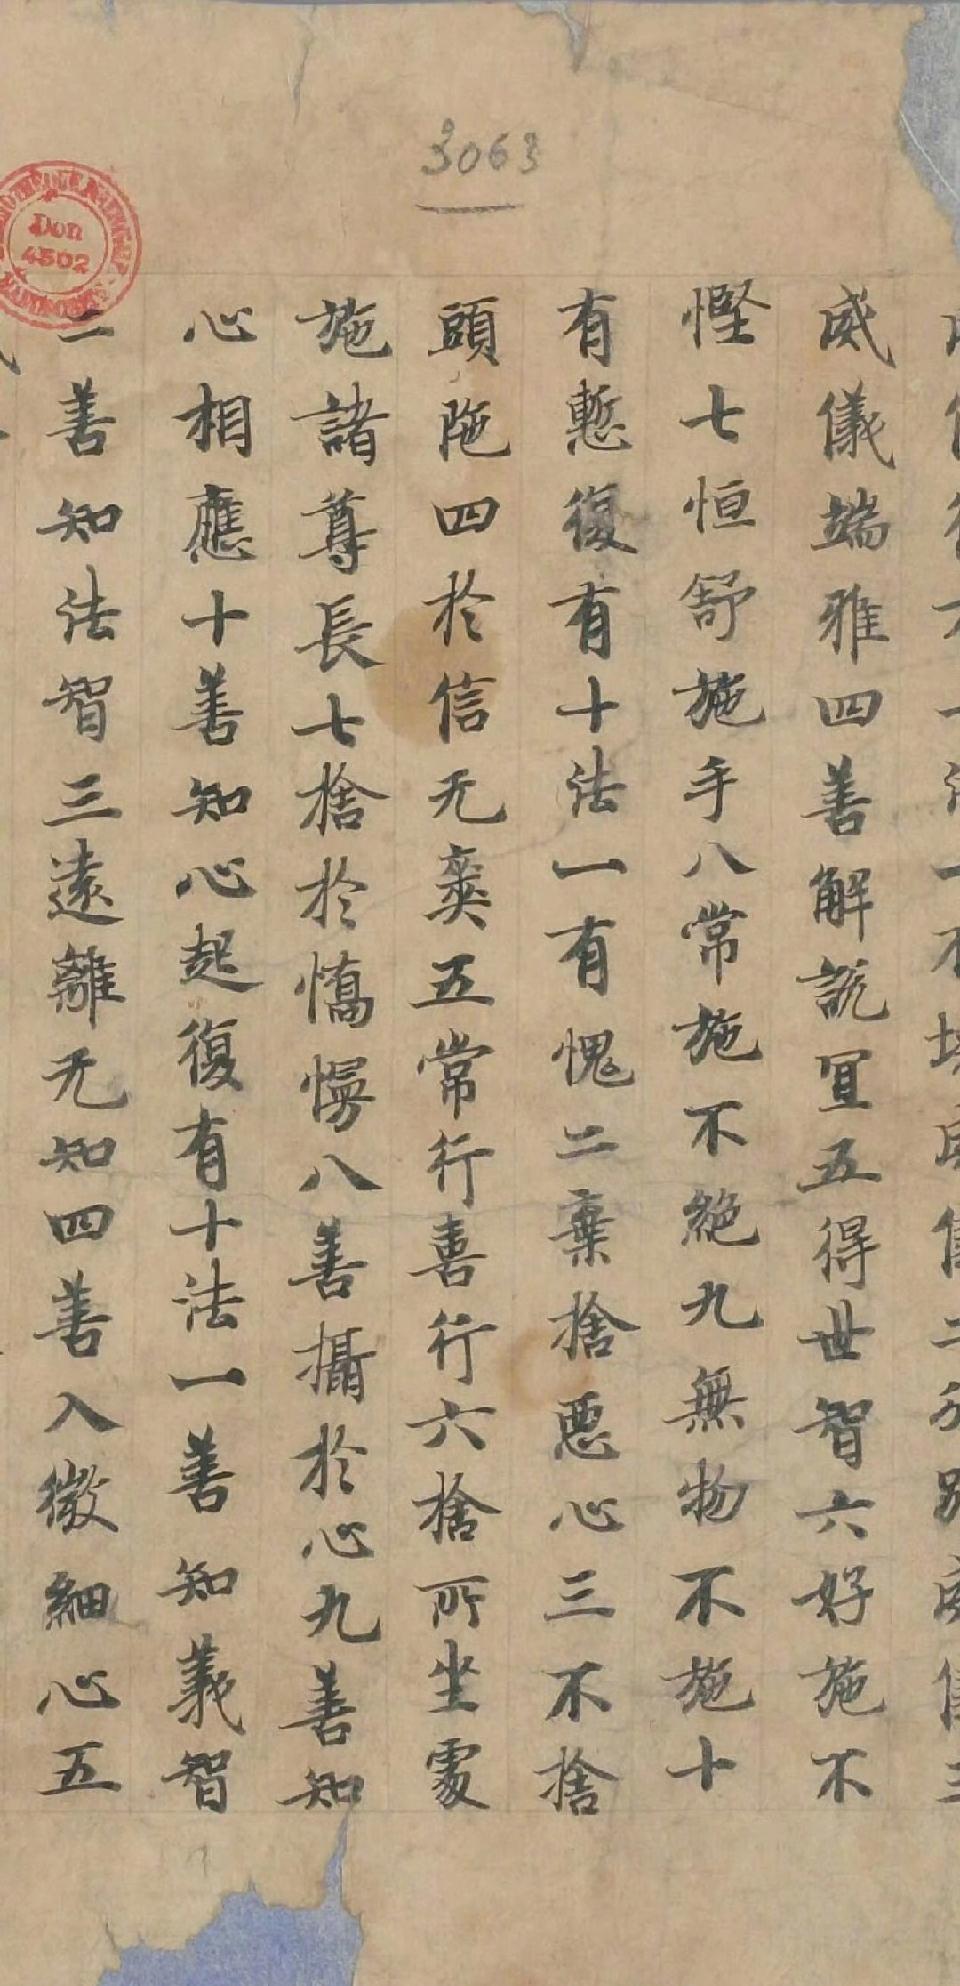 3063
Don
4502
威儀端雅四善解説宜五得世智六好施不
慳七恒舒施手八常施不絶九無物不施十
有慙復有十法一有愧二棄捨惡心三不捨
頭陁四於信无奕五常行喜行六捨所坐處
施諸尊長七捨於憍慢八善攝於心九善知
心相應十善知心起復有十法一善知義智
二善知法智三遠離无知四善入微細心五